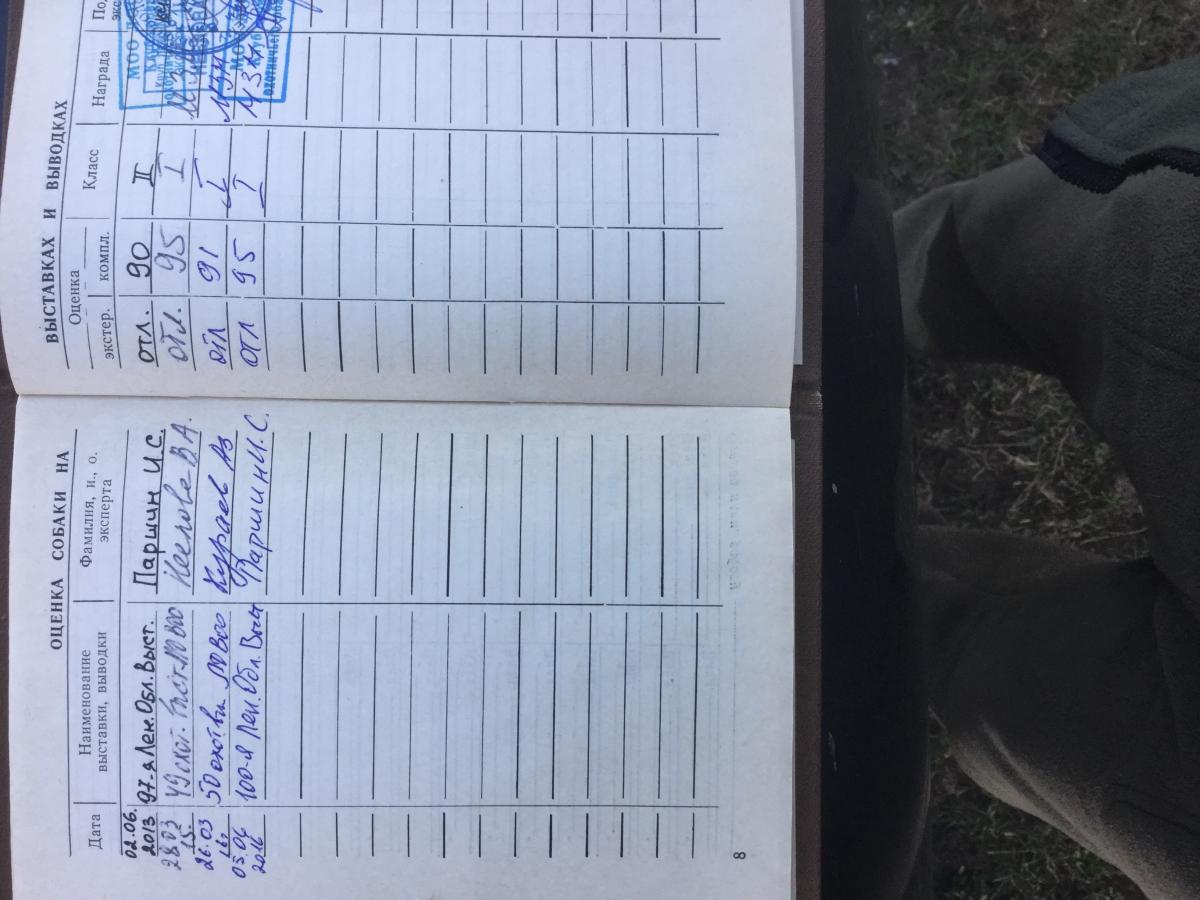 ОЦЕНКА СОБАКИ НА ВЫСТАВКАХ И ВЫВОДКАХ
Дата Наименование выставки, выводки Фамилия, и., о. эксперта Оценка экстер. компл. Класс Награда
02.06. 2013 97-я Лен. Обл. Выст. Паршин И.С. отл. 90 II
28.03 15 49 охот. ЛОВОО В.А. отл. 95 I
26.03 16г 50 охот вы. ЛОВОО Кураев АВ отл 91 I МЗМ
05.06 2016 100-я Лен. Обл. Выст Паршин И.С. отл 95 I
МОО
8